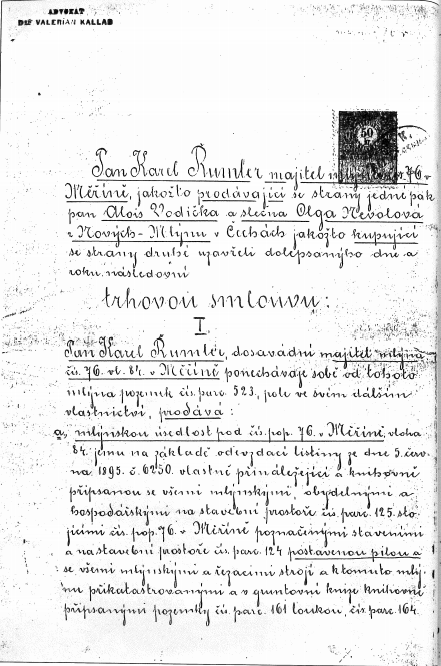 ADVOKÁT
DR VALERIÁN KALLAB
50
Pan Karel Rumler majitel čp. 76 v
Měříně, jakožto prodávající se strany jedné pak
pan Alois Vodička a slečna Olga Nevolová
z Nových-Mlýnů v Čechách jakožto kupující
se strany druhé ujavřeli dolepsaného dne a
roku následovní
trhovou smlouvu:
I.
Pan Karel Rumler, dosavadní majitel mlýna
čís. 76. vl. 84. v Měříně ponechávaje sobě od tohoto
mlýna pozemek čís. parc. 523, pole ve svém dalším
vlastnictví, prodává:
a, mlýnskou usedlost pod čís. pop. 76. v Měříně, vloha
84. jemu na základě odevzdací listiny ze dne 5. červ-
na 1895. č. 6250. vlastně přináležející a knihovně
připsanou se všemi mlýnskými, obydelnými a
hospodářskými na stavební prostoře čís. parc. 125 sto-
jícími čís. pop. 76. v Měříně poznačenými staveními
a na stavební prostoře čís. parc. 124 postavenou pilou a
se všemi mlýnskými a řezacími stroji a k tomuto mlý-
nu přikatastrovanými a v gruntovní knize knihovně
připsanými pozemky čís. parc. 161 loukou, čís. parc. 164.